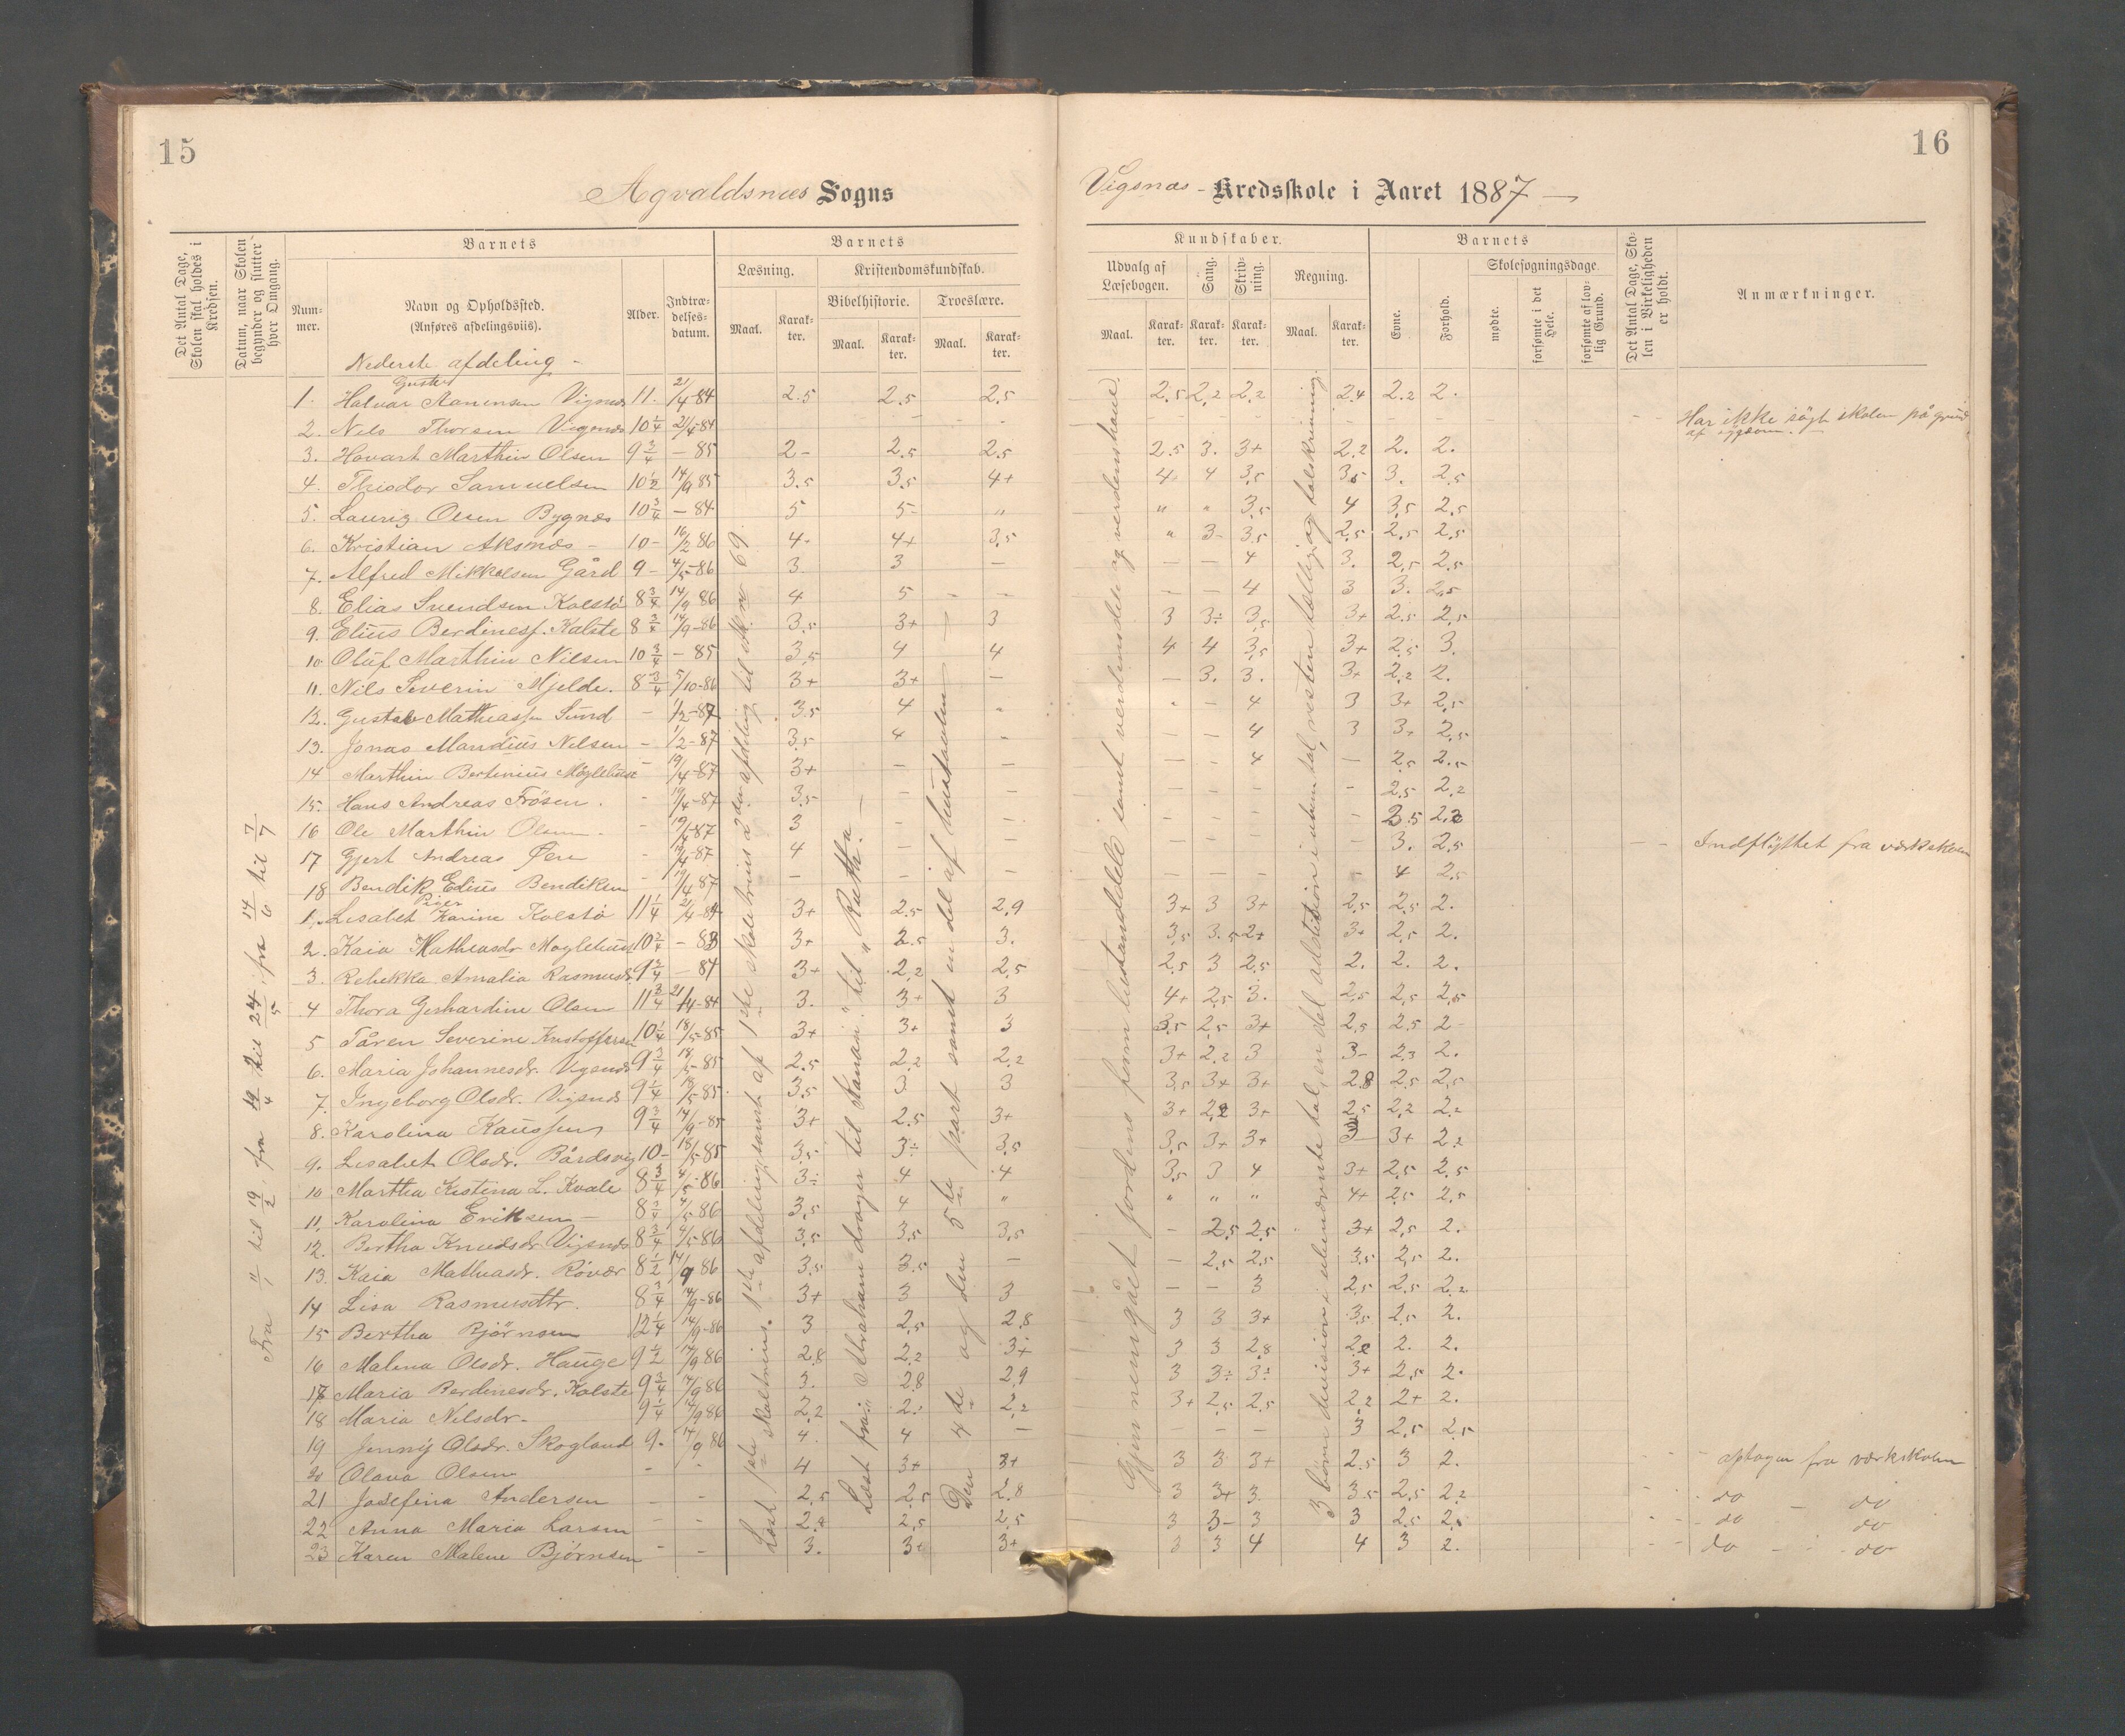 15
16
Agvaldsnæs Sogns
Vigsnæs - Kredsskole i Aaret 1887 —
Det Antal Dage, Skolen skal holdes i Kredsen.
Datum, naar Skolen begynder og slutter hver Omgang.
Barnets
Nummer.
Navn og Opholdssted.
(Anføres afdelingsviis).
Alder.
Indtrædelsesdatum.
Barnets
Læsning.
Kristendomskundskab.
Bibelhistorie.
Troeslære.
Maal.
Karakter.
Maal.
Karakter.
Maal.
Karakter.
Kundskaber.
Udvalg af Læsebogen.
Sang.
Skrivning.
Regning.
Maal.
Karakter.
Karakter.
Karakter.
Maal.
Karakter.
Barnets
Evne.
Forhold.
Skolesøgningsdage.
mødte.
forsømte i det Hele.
forsømte af lovlig Grund.
Det Antal Dage, Skolen i Virkeligheden er holdt.
Anmærkninger.
Nederste afdeling -
Gustav
1. Halvar Aanensen Vigsnæs 11. 21/4-84 2.5 2.5 2.5 2.5 2.2 2.2 2.4 2.2 2.
2. Nils Thorsen Vigsnæs 10 1/4 21/4-84 Har ikke søgt skolen på grund
3. Hovart Marthin Olsen 9 3/4 - 85 2- 2.5 2.5 2.5 3. 3+ 2.2 2. 2.
4. Thiodor Samuelsen 10 1/2 14/9 85 3.5 3.5 4+ 4 4 3.5 3.5 3. 2.5
5. Lauriz Olsen Bygnes 10 3/4 - 84 5 5- " " " 3.5 4 3.5 2.5
6. Kristian Aksnæs - 10- 16/2 86 4- 4+ 3.5 " 3- 3.5 2.5 2.5 2.5
7. Alfred Mikkelsen Gård 9 - 4/5-86 3 3 — — — 4 3. 2.5 2.5
8. Elias Svendsen Kolstø 8 3/4 14/9 86 4 5 — — — — 4 3 3. 2.5
9. Elius Berdinesf. Kalstø 8 3/4 14/9-86 3.5 3+ 3 3 3÷ 3.5 3+ 2.5 2.5
10. Oluf Marthin Nilsen 10 3/4 - 85 3.5 4 4 4 4 3.5 3+ 2.5 3.
11. Nils Severin Mjelde. 8 3/4 5/10-86 3+ 3+ — — 3. 3. 3+ 2.2 2.
12. Gustav Mathiassen Sund - 1/2-87 3.5 4 - - - 4 3 3+ 2.5
13. Jonas Mandius Nilsen - 1/2-87 3.5 4 - — — 4 3 3+ 2.5
14 Marthin Bertinius - 19/4-87 3+ — — — — 4 — 2.5 2.5
15. Hans Andreas Frösen. - 19/4-87 3.5 — — — — — - 2.5 2.2
16 Ole Marthin Olsen - - 19/4-87 3 — — — — — - 3.5 2.2
17 Gjert Andreas Øen - 19/4-87 4 — — — — — - 3. 2.5 Indflyttet fra værkskolen
18 Bendik Edius Bendiksen - 19/4 87 — — — — — — - 4 2.5
Piger
1. Lisabet Karine Kolstø 11 1/4 21/4-84 3+ 2.5 2.9 3+ 3 3+ 2.5 2.5 2.
2. Kaia Mathiasdr. 10 2/4 - 83 3+ 2.5 3. 3.5 3.5 2+ 3+ 2.5 2.
3. Rebekka Amalia Rasmusdr 9 3/4 - 84 3+ 2.2 2.5 2.5 3 2.5 2. 2. 2.
4 Thora Gerhardine Olsen 11 3/4 21/4-84 3. 3+ 3 4+ 2.5 3. 2.5 2.5 2.5
5 Tåren Severine 10 1/4 18/5-85 3+ 3+ 3 3.5 2.5 3+ 2.5 2.5 2-
6. Maria Johannesdr. Vigsnæs 9 3/4 18/5 85 2.5 2.2 2.2 3+ 2.2 3 3- 2.3 2.
7. Ingeborg Olsdr. Vigsnæs 9 1/4 18/5-85 3.5 3 3 3.5 3+ 3+ 2.8 2.5 2.5
8. Karolina 9 3/4 14/9-85 3+ 2.5 3+ 3+ 2.2 3+ 2.5 2.2 2.2
9. Lisabet Olsdr. Bårdsvig 10- 18/5-85 3.5 3÷ 3.5 3.5 3+ 3+ 3 3+ 2.2
10 Martha Kistina L. Kvale 8 3/4 4/5-86 3÷ 4 4 3.5 3 4 3+ 2.5 2.5
11. Karolina Eriksen - 8 3/4 4/5-86 3.5 4 " " " " 4+ 2.5 2.5
12. Bertha Knudsdr Vigsnæs 8 3/4 4/5-86 3.5 3.5 3.5 — 2.5 2.5 3+ 2.5 2.
13. Kaia Mathiasdr. Röver 8 1/2 14/9 86 3.5 3.5 — — 2.5 2.5 3.5 2.5 2.
14 Lisa Rasmusdtr. 8 3/4 14/9-86 3+ 3 3 — — 3 2.5 2.5 2.2
15 Bertha Bjørnsen 12 1/4 14/9-86 3 2.5 2.8 3 3 3+ 3.5 2.5 2.
16 Malena Olsdr. Hauge 9 1/2 14/9 86 2.8 2.2 3+ 3 3 2.8 2.2 2. 2.
17 Maria Berdinesdr. Kolstø 9 3/4 14/9 86 3. 2.8 2.9 3 3÷ 3÷ 3+ 2.5 2.
18 Maria Nilsdr. 9 1/4 14/9 86 2.2 2. 2.2 3+ 2.5 2.5 2.2 2+ 2.
19 Jenny Olsdr. Skogland 9. 14/9 86 4. 4 — — — — 3 2.5 2.5
20 Olava Olsen - - 4 3+ 3+ 3 3 3+ 2.5 3 2. optagen fra værkskolen
21 Josefina Andersen - - 2.5 2.5 2.8 3 3+ 3 3.5 2.5 2.2 do — do
22 Anna Maria Larsen - - 2.8 2.5 2.5 3 3- 3 3 2.5 2.5 do do
23 Karen Malene Bjørnsen - - 3. 3+ 3+ 3 3 4 4 3 2. do - do
Fra 11/1 til 19/2, fra 19/4 til 24/5, fra 14/6 til 7/7
Læst 1ste skoletrins 1ste afdeling, samt af 1ste skoletrins 2den afdeling til stk. nr 69.
Læst fra: "Abraham drager til Kanaan" til "Ruth." —
Den 4de og den 5te part samt en del af hustavlen —
Gjennemgået jordens form bestanddele samt verdensdele og verdenshave.
3 børn division i ubenævnte tal, en del addition i ubenævnte tal, resten tælling og talskrivning.